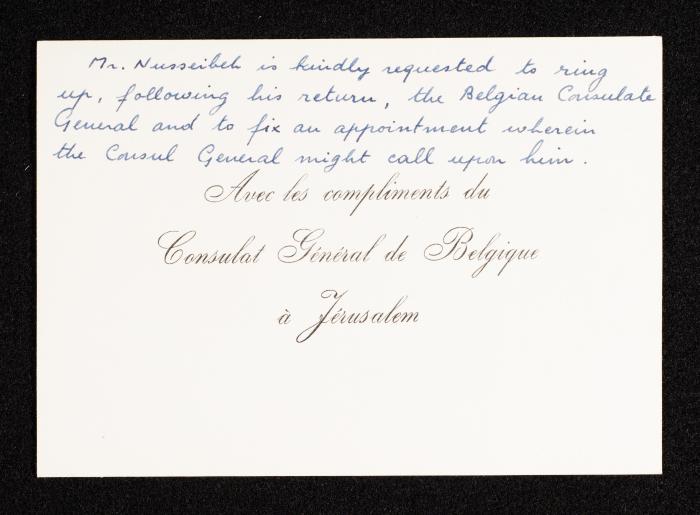 Mr. Nusseibeh is kindly requested to ring
up, following his return, the Belgian Consulate
General and to fix an appointment wherein
the Consul General might call upon him.
Avec les compliments du
Consulat Général de Belgique
à Jérusalem